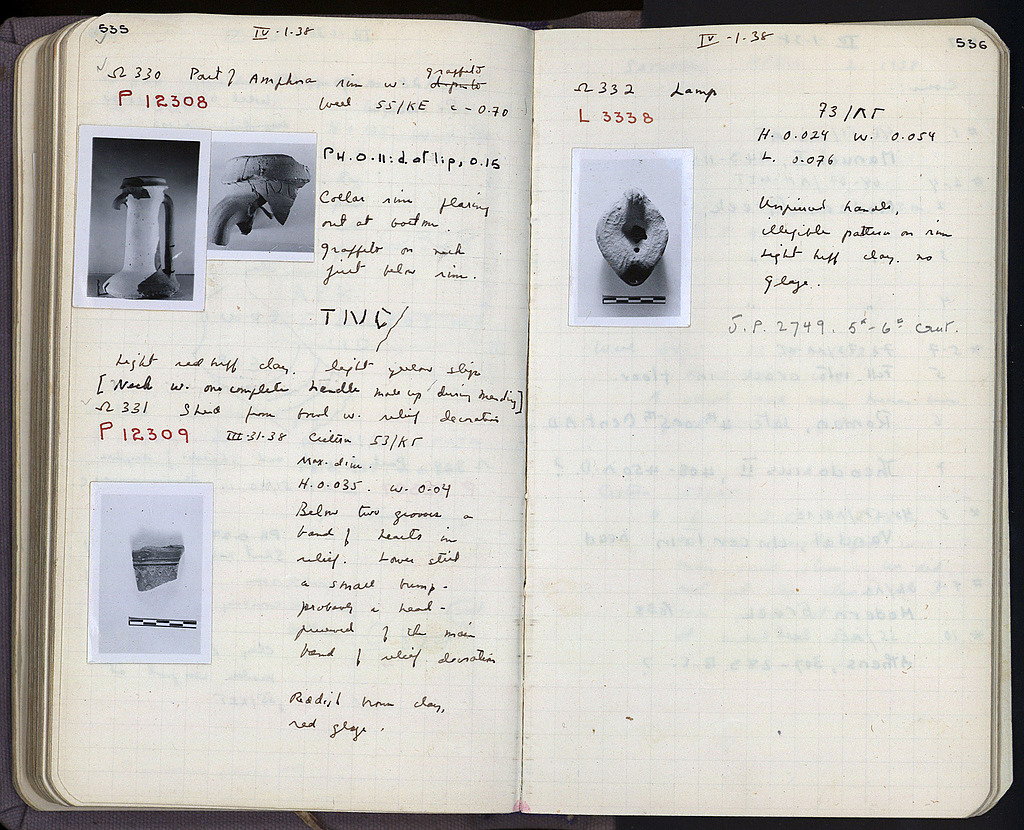 535
IV-1-38
Ω 330 Part of Amphora rim w. graffito dipinto
P 12308
Well 55/KE C-0.70
PH. 0.11: d at lip, 0.15
Collar rim flaring
out at bottom.
graffito on neck
just below rim.
Light red buff clay. light yellow slip
[Neck w. one complete handle made up during mending]
Ω 331 Sherd from bowl w. relief decoration
P 12309
III-31-38 Cistern 53/ΚΓ
Max. dim.
H. 0.035. W. 0.04
Below two grooves a
band of hearts in
relief. Lower still
a small bump -
probably a head -
preserved of the main
band of relief decoration
Reddish brown clay,
red glaze.
IV-1-38
536
Ω 332 Lamp
L 3338
73/ΛΓ
H. 0.024 W. 0.054
L. 0.076
Unpierced handle,
illegible pattern on rim
Light buff clay. no
glaze.
J.P. 2749. 5th-6th cent.